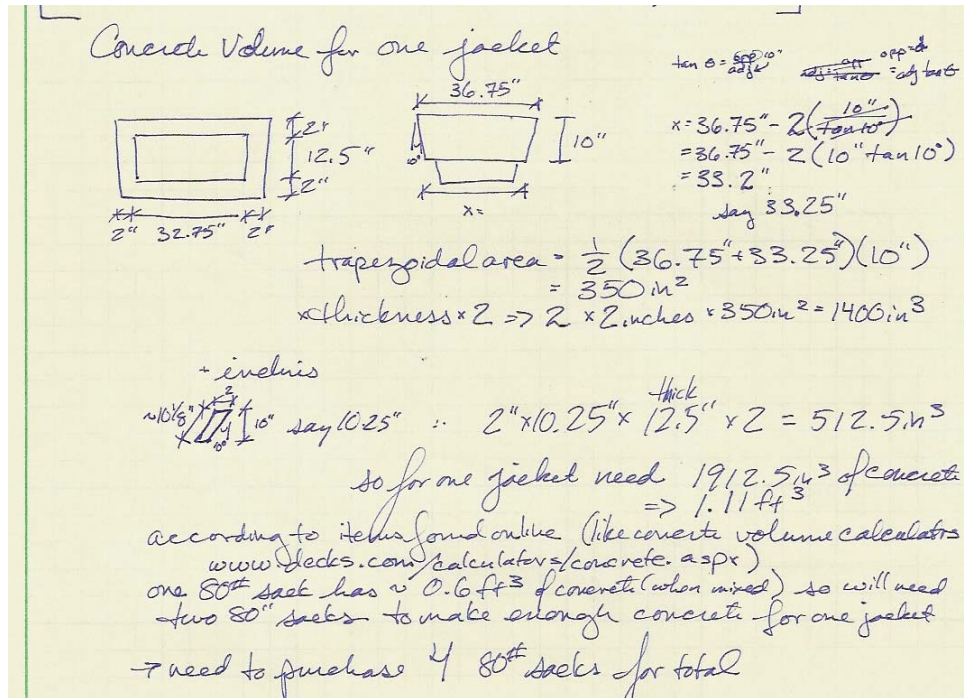 Concrete Volume for one jacket
tan θ = opp 10" / adj
adj = opp / tan θ
opp = d
= adj tan θ
36.75"
2"
12.5"
2"
2" 32.75" 2"
10"
10°
x=
x = 36.75" - 2(10" / tan 10°)
= 36.75" - 2(10" tan 10°)
= 33.2"
say 33.25"
trapezoidal area = 1/2 (36.75" + 33.25")(10")
= 350 in²
x thickness x 2 => 2 x 2 inches x 350 in² = 1400 in³
+ end
2
~10 1/8"
10"
10°
say 10.25" ∴ 2" x 10.25" x 12.5" x 2 = 512.5 in³
thick
so for one jacket need 1912.5 in³ of concrete
=> 1.11 ft³
according to items found online (like concrete volume calculators
www.decks.com/calculators/concrete.aspx)
one 80# sack has ~ 0.6 ft³ of concrete (when mixed) so will need
two 80# sacks to make enough concrete for one jacket
→ need to purchase 4 80# sacks for total